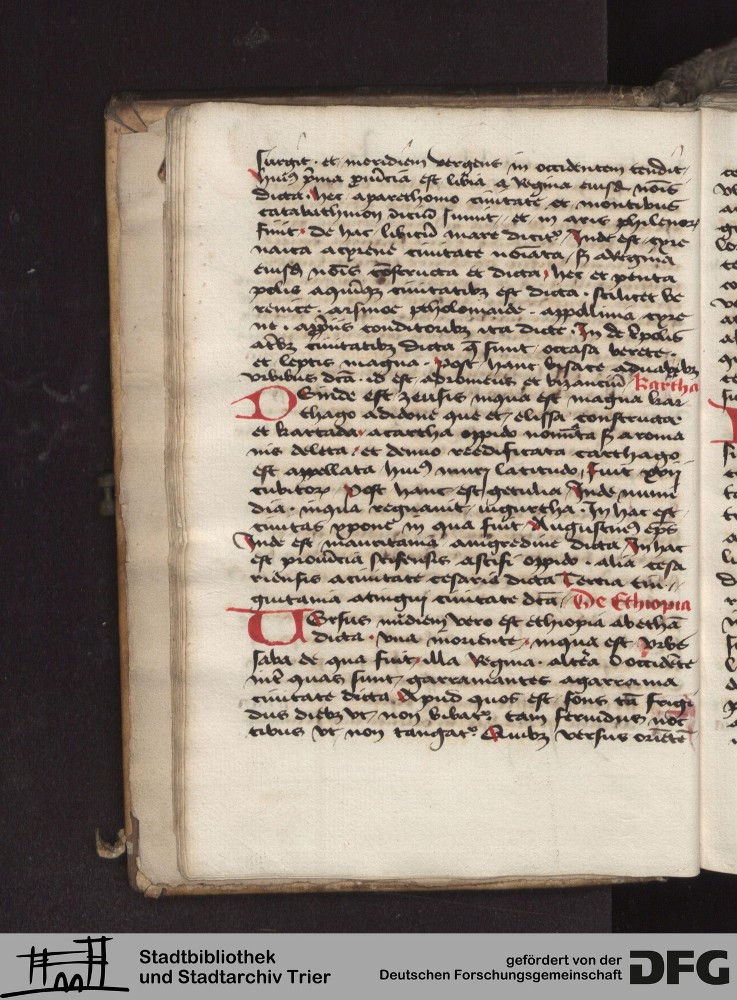 surgit · et meridiem vergens in occidentem tendit
huiꝰ p̄ma ꝓuīcia est libia a regina eiusdē nois
dicta · hec a parethonio ciuitate et montibus
catabathmon iniciū sumit · et in aris philenoꝝ
finit · de hac libicū mare dicitᷣ · Inde est cyre
naica a cyrene ciuitate noīata / s a regina
eiusdē nois cōstructa et dicta / hec et penta
polis a quīqꝫ ciuitatibꝫ est dicta · scilicet be
renice · arsinoe ptholomaide · appollinia cyre
ne · a ꝓpriis conditoribꝫ ita dicte · In de tripolis
a tribꝫ ciuitatibꝫ dicta q̄ sunt · occasa berete ·
et leptis magna · Post hanc bysace a duabꝫ
vrbibus dcā · id est adrometus et bizanciū Kartha
DEinde est zeusis in qua est magna kar
thago a didone que et elissa constructa ·
et kartada · a cartha oppido noīata s a roma
nis deleta · et denuo reedificata carthago
est appellata huiꝰ muri latitudo / fuit xvij
cubitoꝝ · Post hanc est getulia / Inde numi
dia · in qua regnauit iugurtha · In hac est
ciuitas yppone in qua fuit Augustinꝰ ep̄s
Inde est mauritania a nigredine dicta In hac
est prouīcia stifensis a stifi oppido · alia cesa
riensis a ciuitate cesaria dicta Tercia tin
guitania a tingui ciuitate dcā · De Ethiopia
UErsus meridiem vero est ethiopia ab ethā
dicta · vna in oriente · in qua est vrbs
saba de qua fuit illa Regina · altera ī occidēte
int̄ quas sunt garramantes a garrama
ciuitate dicta / Apud quos est fons tā frigi
dus diebꝫ vt non bibatᷣ tam feruidus noc
tibus vt non tangatᷣ Quibꝫ versus oriētē
Stadtbibliothek
und Stadtarchiv Trier
gefördert von der
Deutschen Forschungsgemeinschaft
DFG